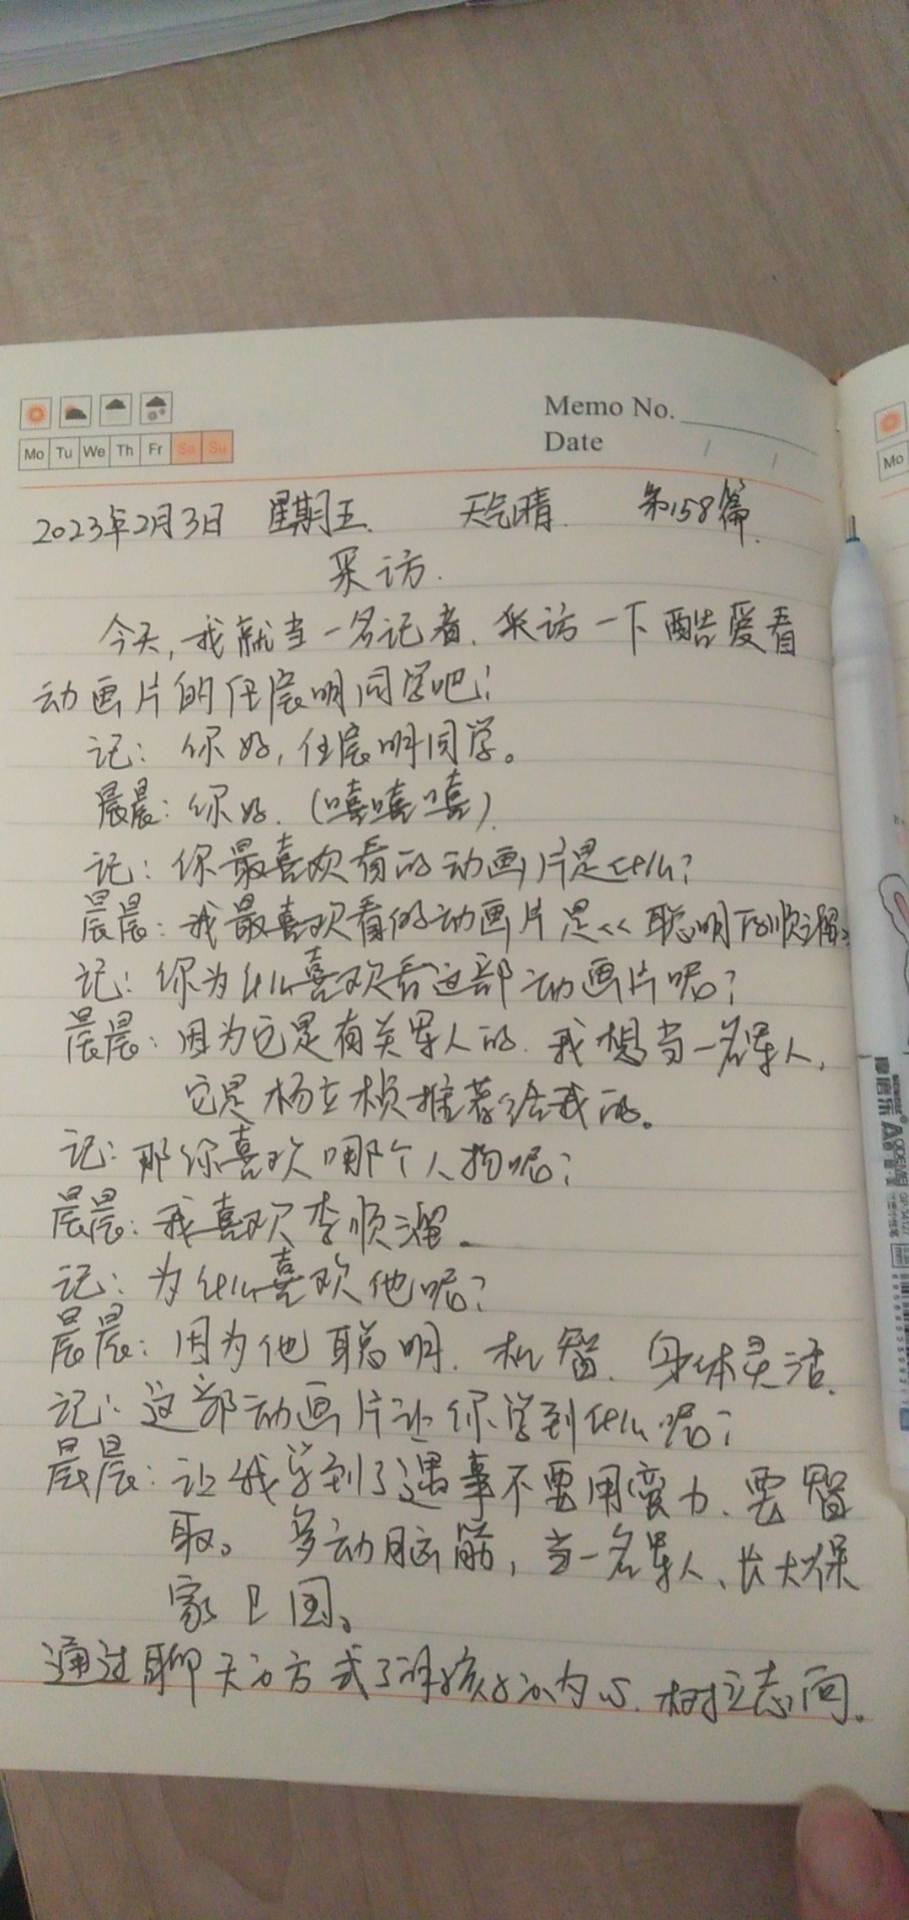 Memo No.
Mo Tu We Th Fr Sa Su
Date / /
Mo
2023年2月3日 星期五. 天气晴. 第158篇.
采访.
今天,我就当一名记者.采访一下酷爱看
动画片的任晨明同学吧!
记:你好,任晨明同学。
晨晨:你好.(嘻嘻嘻)
记:你最喜欢看的动画片是什么?
晨晨:我最喜欢看的动画片是<<聪明的顺溜>>
记:你为什么喜欢看这部动画片呢?
晨晨:因为它是有关军人的.我想当一名军人,
它是杨立桢推荐给我的。
记:那你喜欢哪个人物呢?
晨晨:我喜欢李顺溜。
记:为什么喜欢他呢?
晨晨:因为他聪明.机智.身体灵活.
记:这部动画片让你学到什么呢?
晨晨:让我学到了遇事不要用蛮力、要智
取。多动脑筋,当一名军人、长大保
家卫国。
通过聊天的方式了解孩子的内心.树立志向。